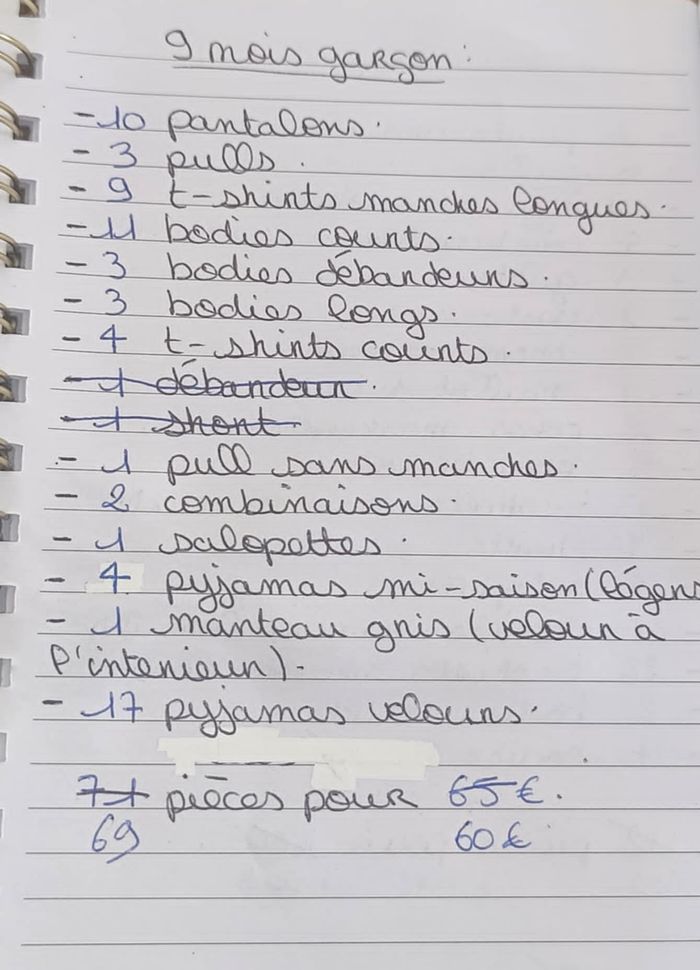 9 mois garçon:
- 10 pantalons.
- 3 pulls.
- 9 t-shirts manches longues.
- 11 bodies courts.
- 3 bodies débardeurs.
- 3 bodies longs.
- 4 t-shirts courts.
- 1 débardeur.
- 1 short.
- 1 pull sans manches.
- 2 combinaisons.
- 1 salopettes.
- 4 pyjamas mi-saison (légers
- 1 manteau gris (velour à
l'interieur).
- 17 pyjamas velours.
71 pièces pour 65€.
69 60€